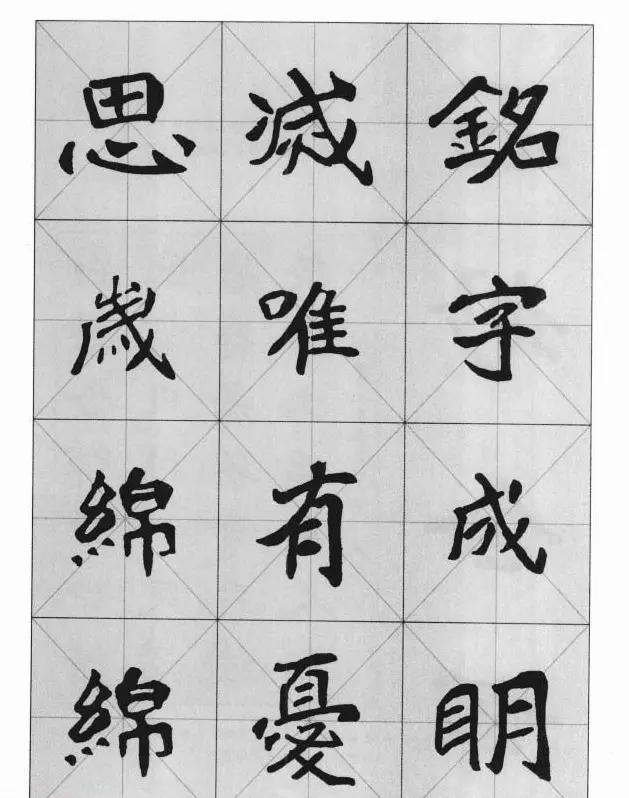 銘字成眀
滅唯有憂
思歲綿綿